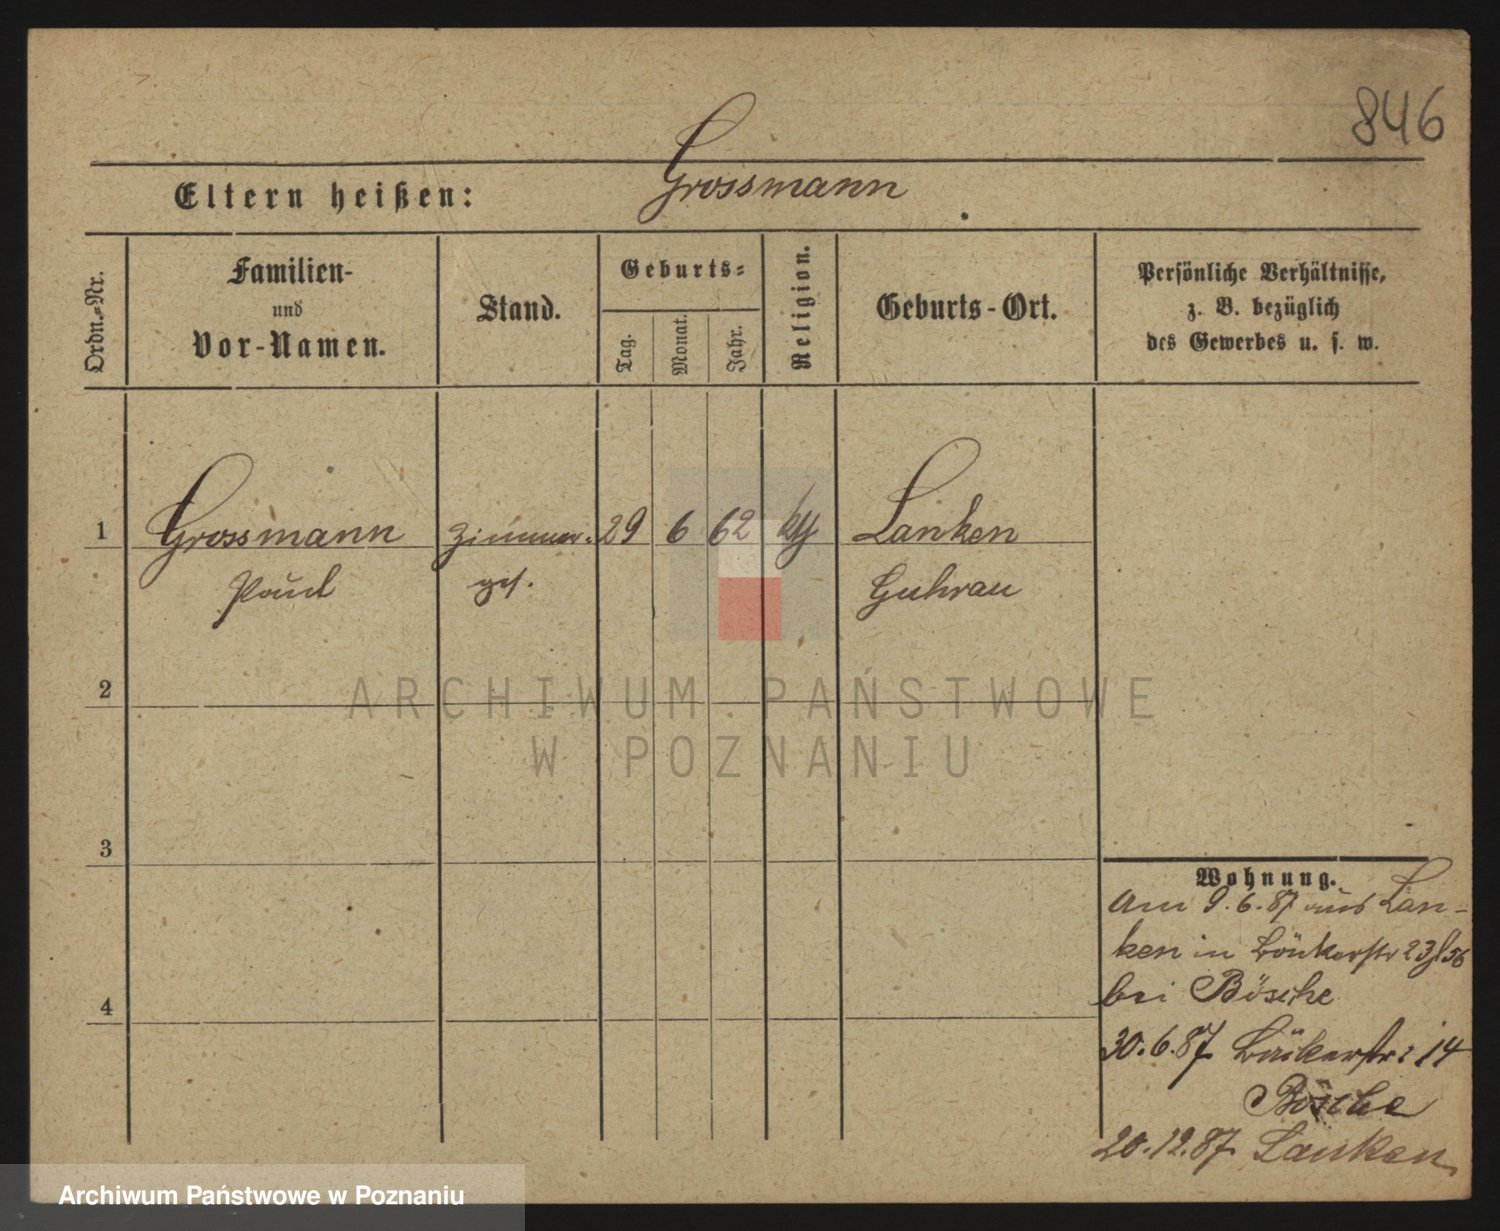 846
Grossmann
Eltern heißen:
Ordn.-Nr.
Familien-
und
Vor-Namen.
Stand.
Geburts-
Tag.
Monat.
Jahr.
Religion.
Geburts-Ort.
Persönliche Verhältnisse,
z. B. bezüglich
des Gewerbes u. s. w.
1 Grossmann Zimmer- 29 6 62 Lanken
Paul ges. Guhrau
2
ARCHIWUM PAŃSTWOWE
W POZNANIU
3
4
Wohnung.
Am 9.6.87 aus Lan-
ken in
bei Bösche
30.6.87 Bäckerstr: 14
Bösche
20.12.87 Lanken
Archiwum Państwowe w Poznaniu